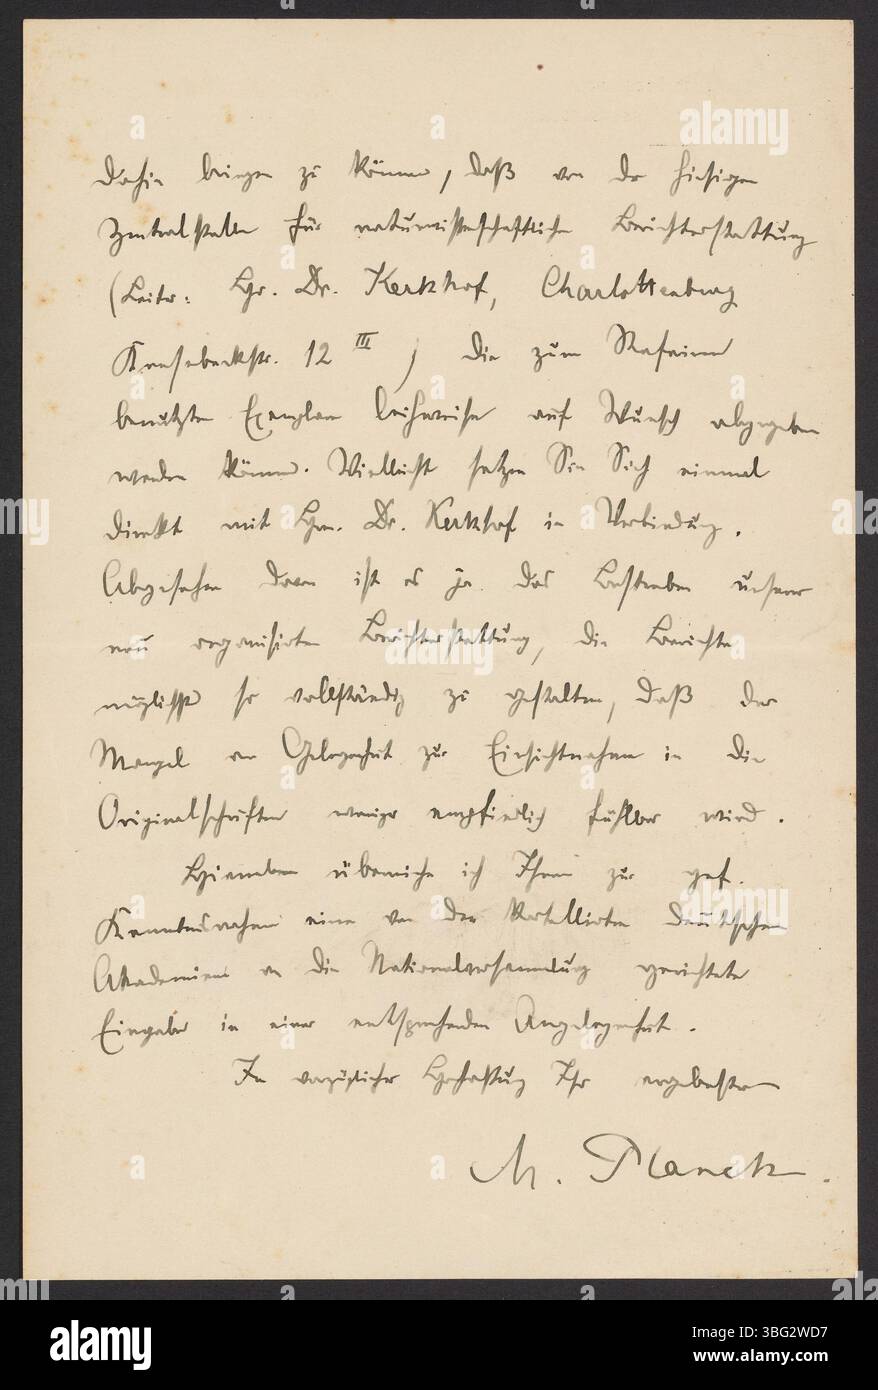 dahin bringen zu können, daß von der hiesigen
Zentralstelle für naturwissenschaftliche Berichterstattung
(Leiter: Hr. Dr. Kerkhof, Charlottenburg
Knesebeckstr. 12 III) die zum Referieren
benutzten Exemplare leihweise auf Wunsch abgegeben
werden können. Vielleicht setzen Sie Sich einmal
direkt mit Hrn. Dr. Kerkhof in Verbindung.
Abgesehen davon ist es ja das Bestreben unserer
neu organisirten Berichterstattung, die Berichte
möglichst so vollständig zu gestalten, daß der
Mangel an Gelegenheit zur Einsichtnahme in die
Originalschriften weniger empfindlich fühlbar wird.
Hierneben überreiche ich Ihnen zur gef.
Kenntnisnahme eine von den kartellirten deutschen
Akademien an die Nationalversammlung gerichtete
Eingabe in einer entsprechenden Angelegenheit.
In vorzüglicher Hochachtung Ihr ergebenster
M. Planck.
alamy
Image ID: 3BG2WD7
www.alamy.com